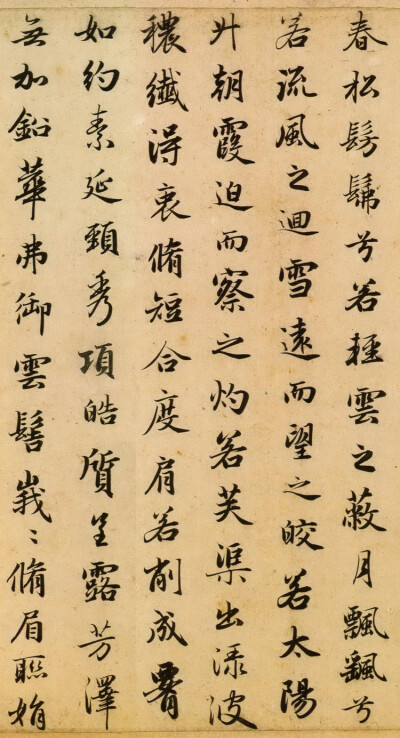 春松髣髴兮若輕雲之蔽月飄颻兮
若流風之迴雪遠而望之皎若太陽
升朝霞迫而察之灼若芙渠出渌波
穠纖得衷脩短合度肩若削成腰
如約素延頸秀項皓質呈露芳澤
無加鉛華弗御雲髻峩〻脩眉聯娟